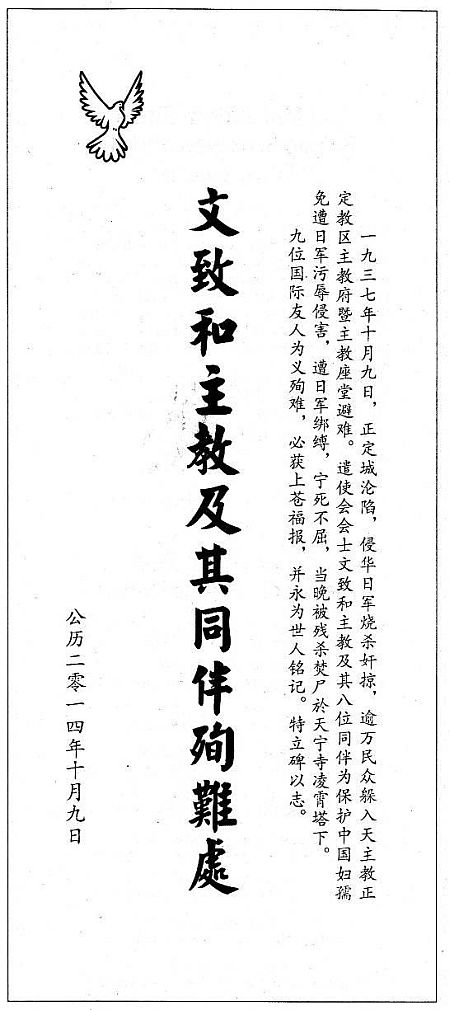 一九三七年十月九日，正定城沦陷，侵华日军烧杀奸掠，逾万民众躲入天主教正
定教区主教府暨主教座堂避难。遣使会会士文致和主教及其八位同伴为保护中国妇孺
免遭日军污辱侵害，遭日军绑缚，宁死不屈，当晚被残杀焚尸於天宁寺凌霄塔下。
九位国际友人为义殉难，必获上苍福报，并永为世人铭记。特立碑以志。
文致和主教及其同伴殉難處
公历二零一四年十月九日